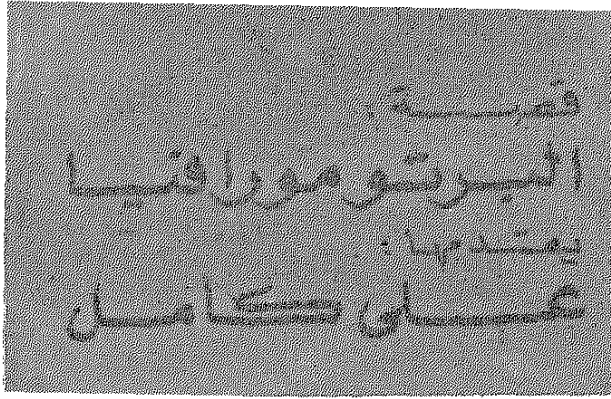 قصة :
البرتو مورافيا
يقدمها :
على كامل